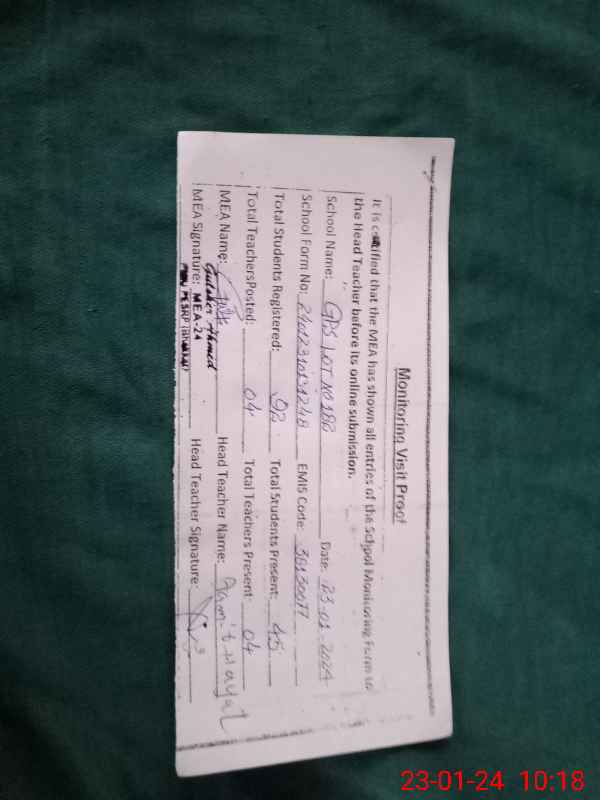 Monitoring Visit Proof
It is certified that the MEA has shown all entries of the School Monitoring Form to
the Head Teacher before its online submission.
School Name: GPS LOT NO 188 Date: 23-01-2024
School Form No: EMIS Code:
Total Students Registered: 92 Total Students Present: 45
Total TeachersPosted: 04 Total Teachers Present: 04
MEA Name: Head Teacher Name: Hayat
Gulsher Ahmed
MEA Signature: MEA-24 Head Teacher Signature:
23-01-24 10:18